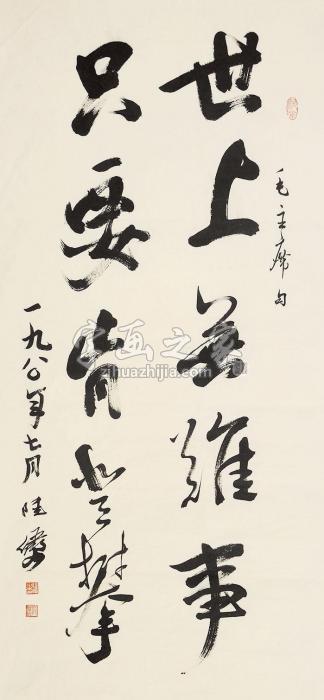 毛主席句
世上無難事
只要肯登攀
一九八〇年七月 陆俨少
字画之家
zihuazhijia.com